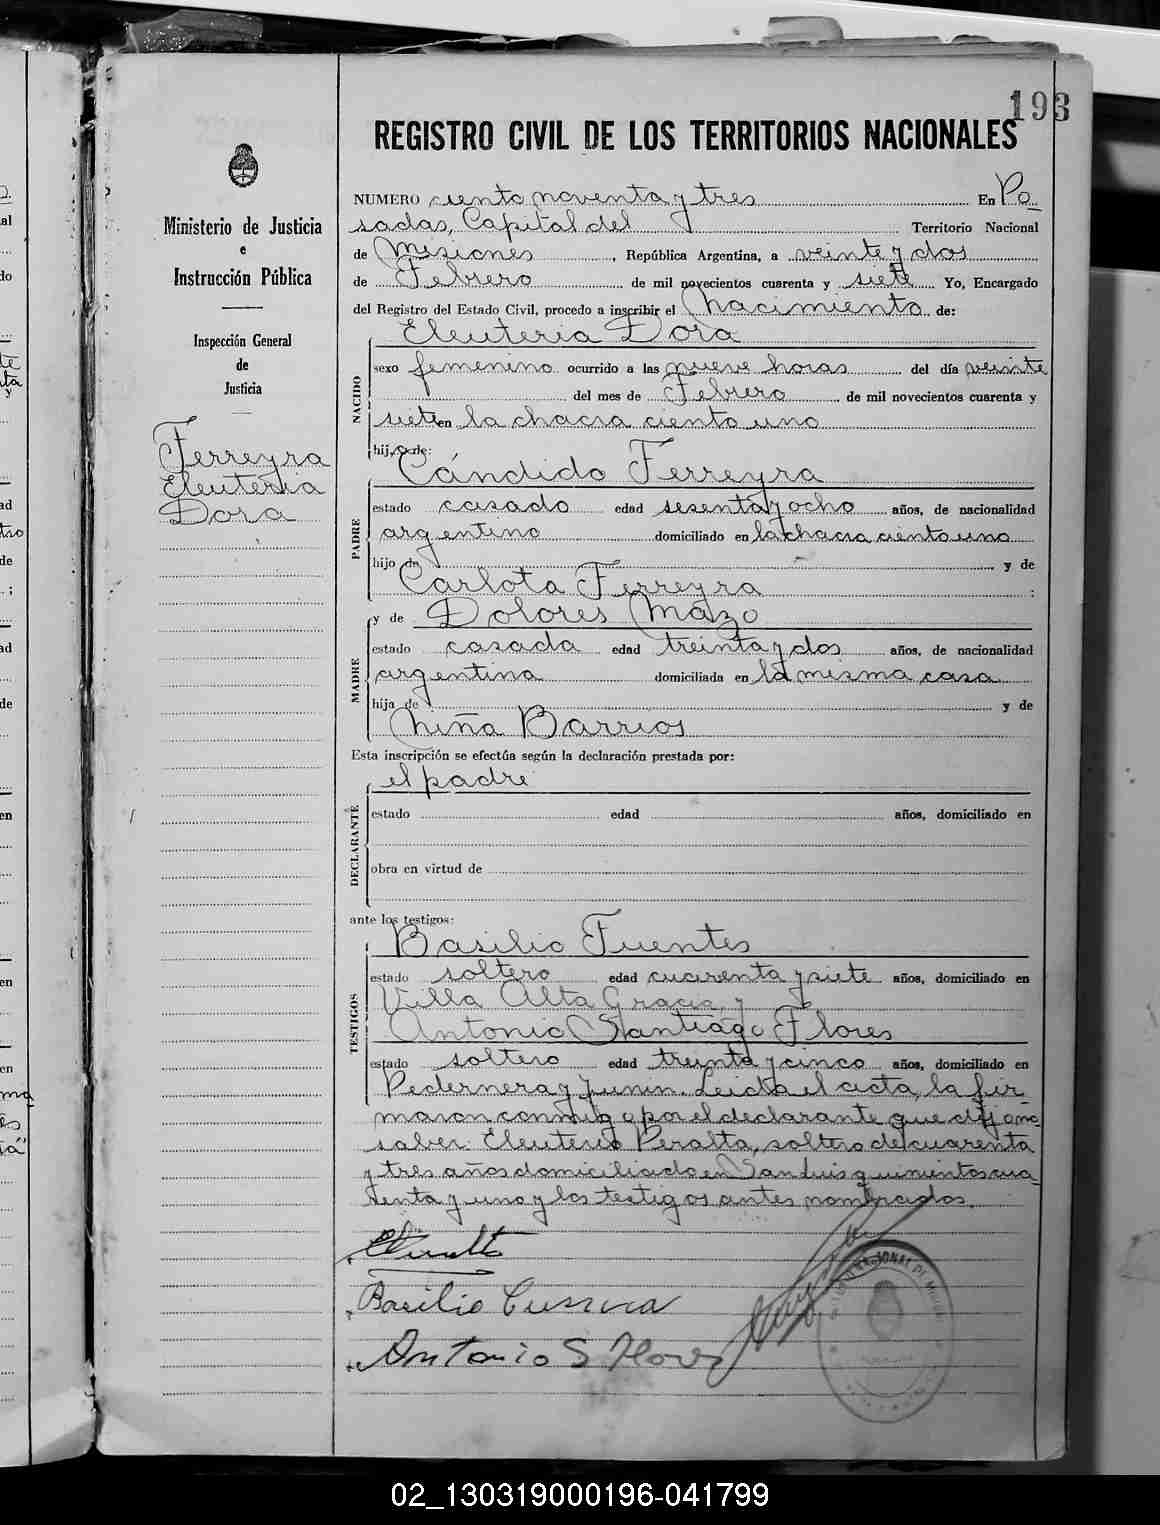 193
REGISTRO CIVIL DE LOS TERRITORIOS NACIONALES
Ministerio de Justicia
e
Instrucción Pública
Inspección General
de
Justicia
Ferreyra
Eleuteria
Dora
NUMERO ciento noventa y tres En Po_
sadas, Capital del Territorio Nacional
de Misiones, República Argentina, a veinte y dos
de Febrero de mil novecientos cuarenta y siete Yo, Encargado
del Registro del Estado Civil, procedo a inscribir el Nacimiento de:
Eleuteria Dora
NACIDO
sexo femenino ocurrido a las nueve horas del día veinte
del mes de Febrero de mil novecientos cuarenta y
siete en la chacra ciento uno
hija de:
Cándido Ferreyra
PADRE
estado casado edad sesenta y ocho años, de nacionalidad
argentino domiciliado en la chacra ciento uno
hijo de y de
Carlota Ferreyra :
y de Dolores Mazo
MADRE
estado casada edad treinta y dos años, de nacionalidad
argentina domiciliada en la misma casa
hija de y de
Niña Barrios
Esta inscripción se efectúa según la declaración prestada por:
el padre
DECLARANTE
estado edad años, domiciliado en
obra en virtud de
ante los testigos:
Basilio Fuentes
TESTIGOS
estado soltero edad cuarenta y siete años, domiciliado en
Villa Alta Gracia, y
Antonio Santiago Flores
estado soltero edad treinta y cinco años, domiciliado en
Pedernera y Junin. Leida el acta, la fir_
maron conmigo por el declarante que dijo no
saber Eleuterio Peralta, soltero de cuarenta
y tres años domiciliado en San Luis quinientos cua_
renta y uno y los testigos antes nombrados.
Basilio
Antonio S Flores
02_130319000196-041799